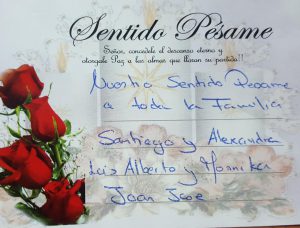 Sentido Pésame
Señor, concédele el descanso eterno y
otórgale Paz a las almas que lloran su partida!!
Nuestro Sentido Pesame
a toda la Familia
Santiago y Alexandra
Luis Alberto y Monika
Juan Jose